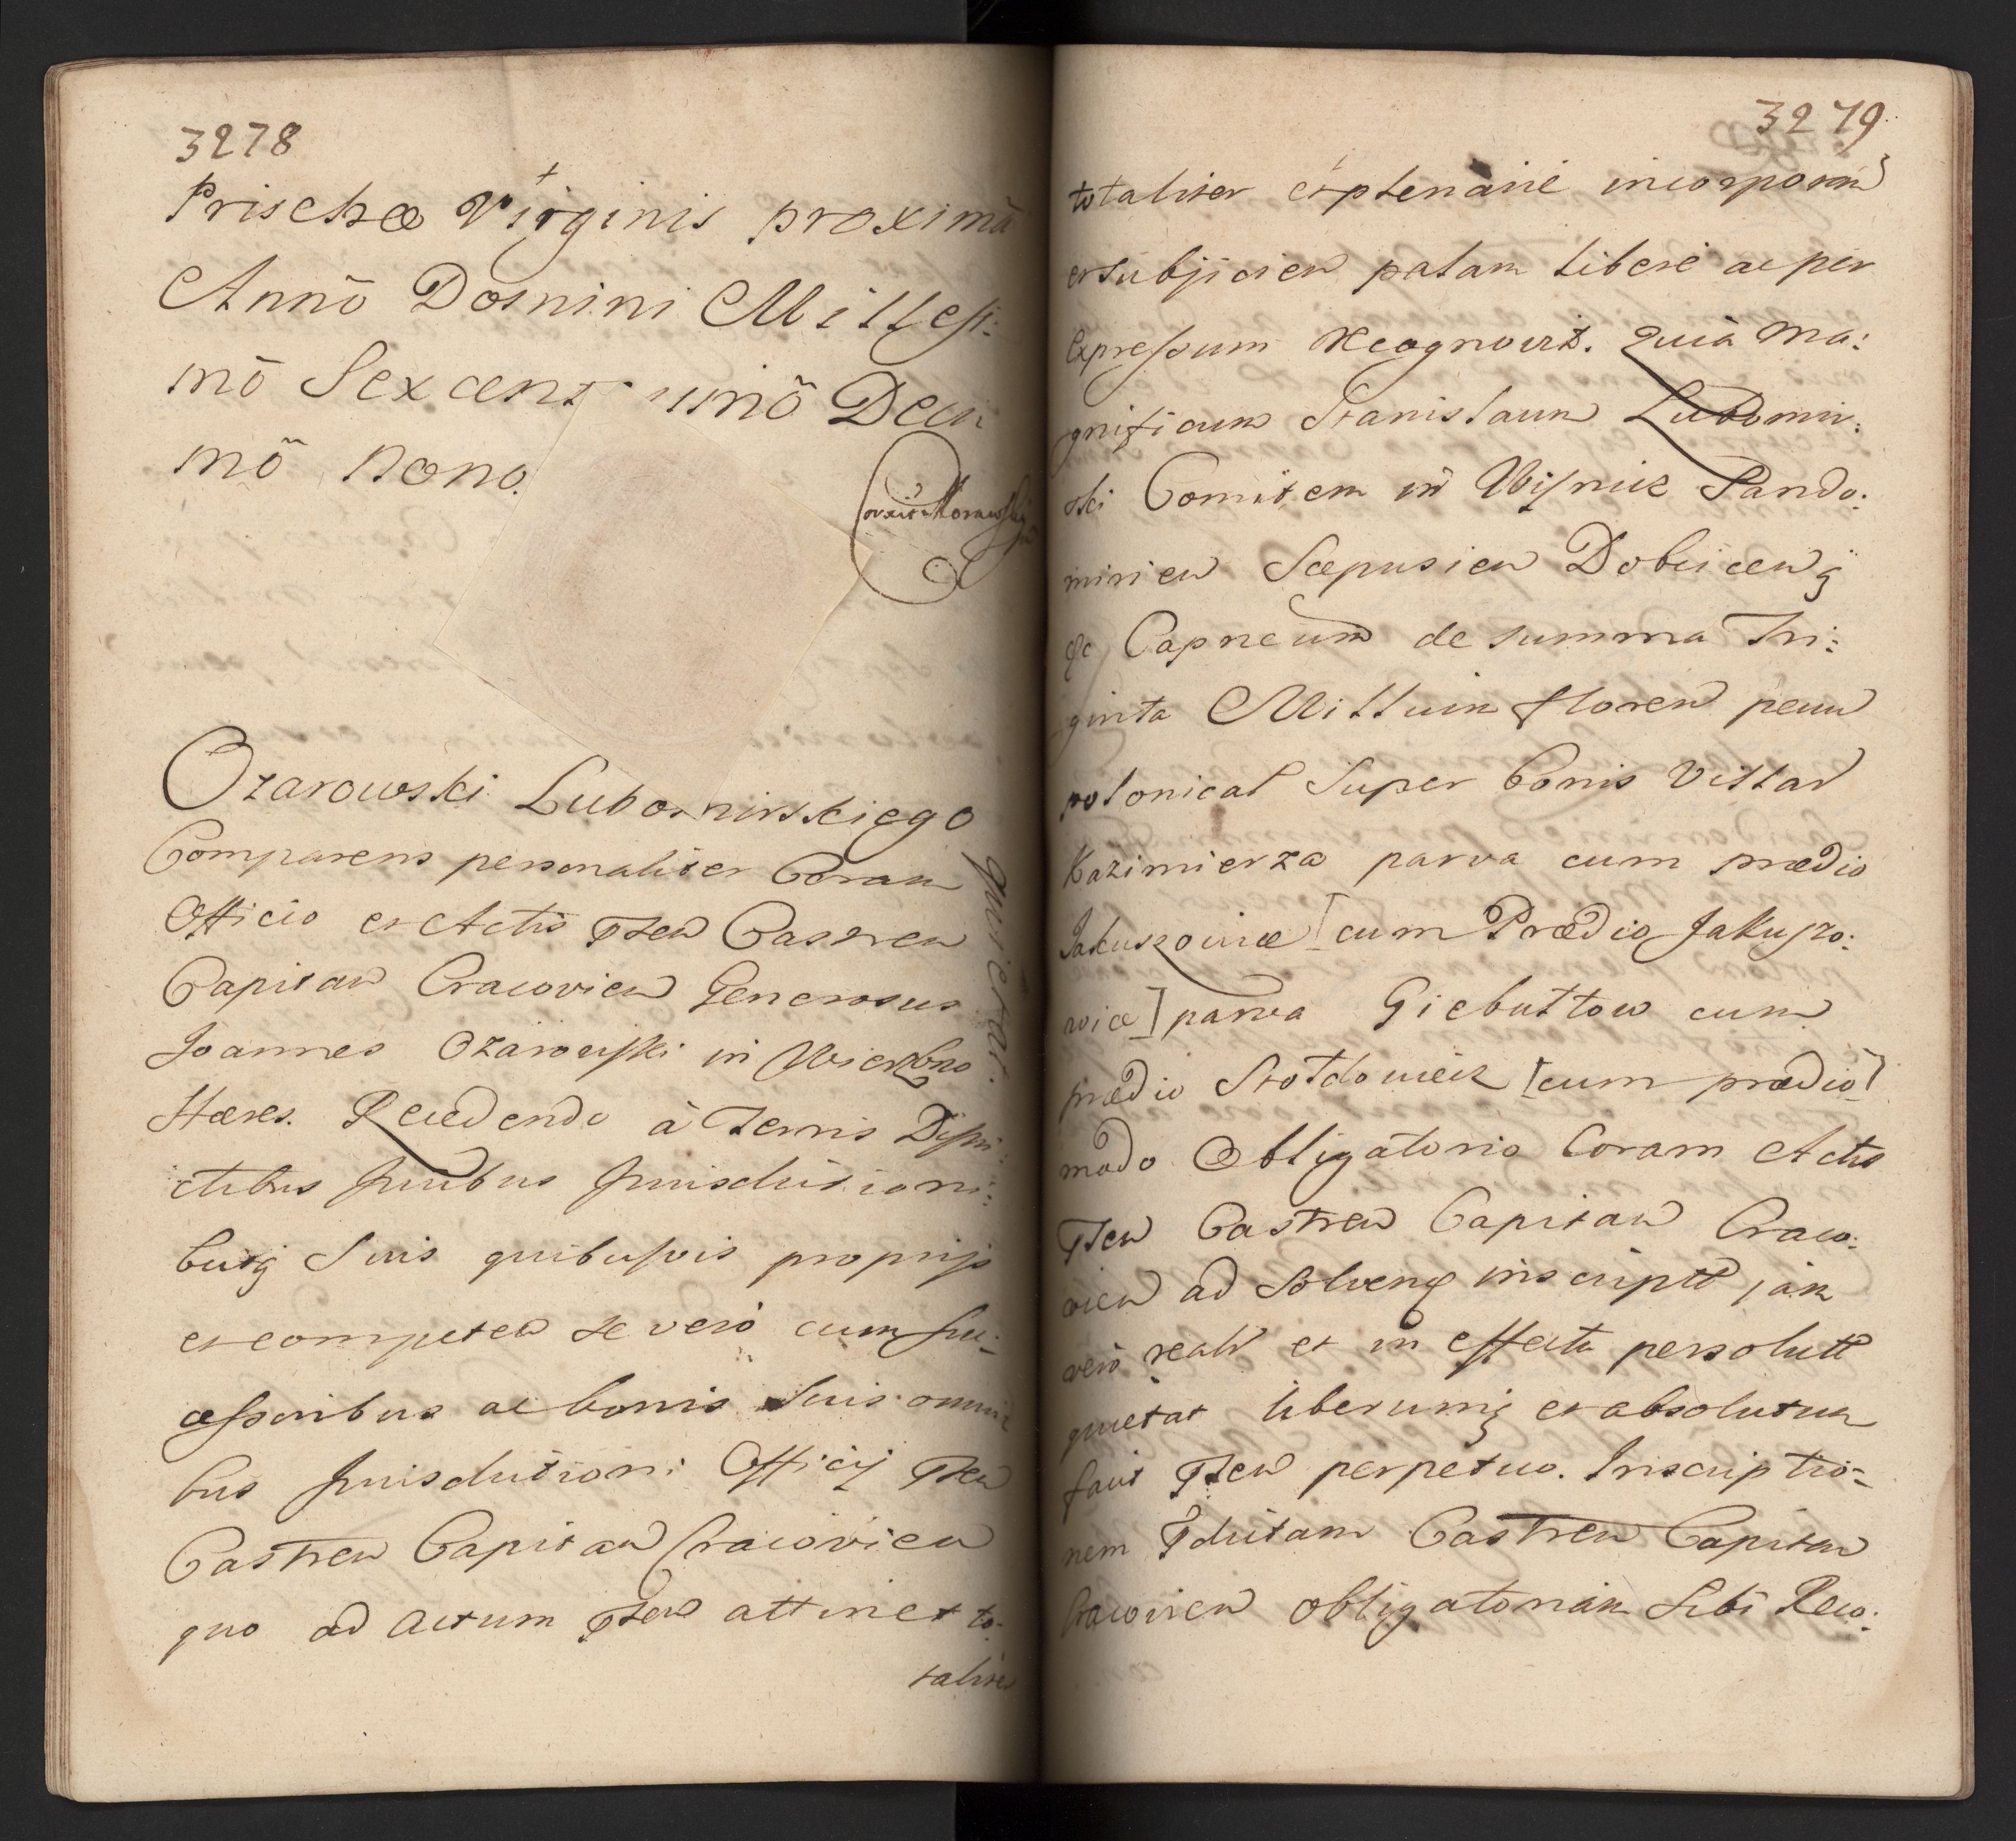 3278
Prischæ Virginis proximā
Annō Domini Millesi:
mō Sexcent imō Deci
mō nono.
Ozarowski Lubomirskiego
quietat.
Comparens personaliter Coram
Officio et Actis pñten Castren
Capitan Cracovien Generosus
Joannes Ozarowski in Wierzbno
Hæres. Recedendo à Terris Distri:
ctibus Juribus Jurisdictioni:
busq Suis quibusvis proprijs
et competen se vero cum suc:
cessoribus ac bonis Suis omni
bus Jurisdictioni Officij pñten
Castren Capitan Cracovien
quo ad actum pñten attinet to:
taliter
3279
totaliter et plenarie incorporan
et subjicien palam libere ac per
expressum recognovit. Quia Ma:
gnificum Stanislaum Lubomir:
ski Comitem in Wisnicz Sando:
mirien Scepusien Dobcicenq
&c Capneum de summa Tri:
ginta Millium floren pecun
polonical Super bonis Villar
Kazimierza parva cum prædio
Jakuszowice [cum Prædio Jakuszo:
wice] parva Giebuttow cum
prædio Stotdowiek [cum prædio]
modo Obligatorio Coram Actis
pñten Castren Capitan Craco:
vien ad Solvend inscriptt jam
vero realr et in effectu persolutt
quietat liberumq et absolutum
facit pñten perpetuo. Inscriptio:
nem pdictam Castren Capitan
Cracovien obligatoriam Sibi Reco: